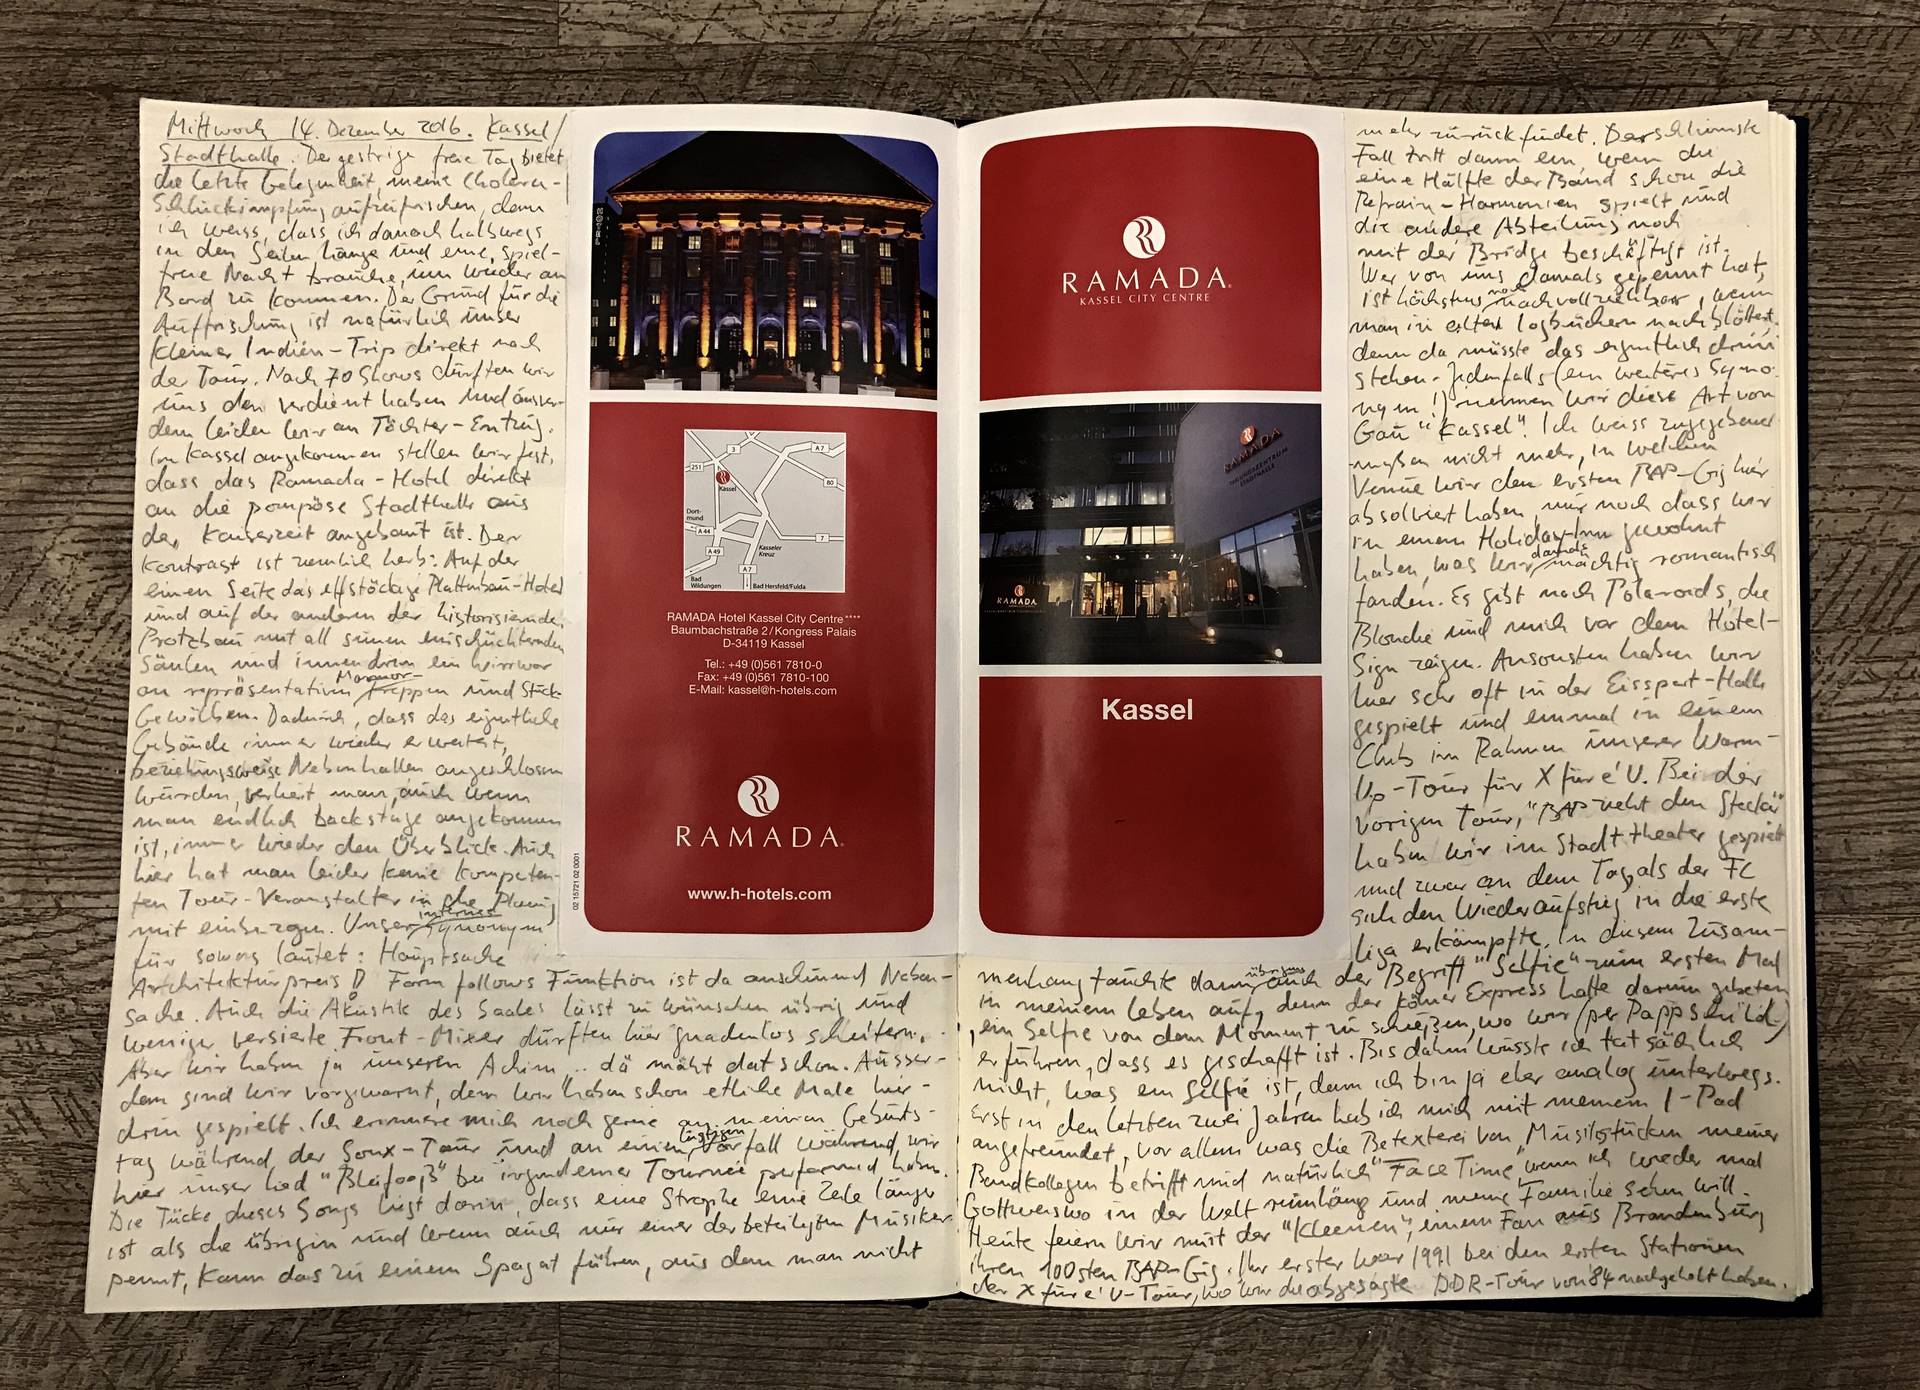 Mittwoch 14. Dezember 2016. Kassel/
Stadthalle. Der gestrige freie Tag bietet
die letzte Gelegenheit, meine Cholera-
Schluckimpfung aufzufrischen, denn
ich weiss, dass ich danach halbwegs
in den Seilen hänge und eine spiel-
freie Nacht brauche, um wieder an
Bord zu kommen. Der Grund für die
Auffrischung ist natürlich unser
kleiner Indien-Trip direkt nach
der Tour. Nach 70 Shows dürften wir
uns den verdient haben und ausser-
dem leiden wir an Töchter-Entzug.
In Kassel angekommen stellen wir fest,
dass das Ramada-Hotel direkt
an die pompöse Stadthalle aus
der Kaiserzeit angebaut ist. Der
Kontrast ist ziemlich herb: Auf der
einen Seite das elfstöckige Plattenbau-Hotel
und auf der anderen der historisierende
Protzbau mit all seinen einschüchternden
Säulen und innendrin ein Wirrwarr
an repräsentativen Marmor-treppen und Stuck-
Gewölben. Dadurch, dass das eigentliche
Gebäude immer wieder erweitert,
beziehungsweise Nebenhallen angeschlossen
wurden, verliert man, auch wenn
man endlich backstage angekommen
ist, immer wieder den Überblick. Auch
hier hat man leider keine kompeten-
ten Tour-Veranstalter in die Planung
mit einbezogen. Unser internes Synonym
für sowas lautet: Hauptsache
Architekturpreis! Form follows Funktion ist da anscheinend Neben-
sache. Auch die Akustik des Saales lässt zu wünschen übrig und
weniger versierte Front-Mixer dürften hier gnadenlos scheitern.
Aber wir haben ja unseren Achim... dä mäht dat schon. Ausser-
dem sind wir vorgewarnt, denn wir haben schon etliche Male hier-
drin gespielt. Ich erinnere mich noch gerne an meinen Geburts-
tag während der Sonx-Tour und an einen lustigen Vorfall während wir
hier unser Lied "Bleifooß" bei irgendeiner Tournee performed haben.
Die Tücke dieses Songs liegt darin, dass eine Strophe eine Zeile länger
ist als die übrigen und wenn auch nur einer der beteiligten Musiker
pennt, kann das zu einem Spagat führen, aus dem man nicht
PRIOR
3
A 7
251
Kassel
80
Dort-
mund
A 44
7
A 49
Kasseler
Kreuz
A 7
Bad
Wildungen
Bad Hersfeld/Fulda
RAMADA Hotel Kassel City Centre****
Baumbachstraße 2/Kongress Palais
D-34119 Kassel
Tel.: +49 (0)561 7810-0
Fax: +49 (0)561 7810-100
E-Mail: kassel@h-hotels.com
RAMADA®
www.h-hotels.com
02 15721 02 0001
RAMADA®
KASSEL CITY CENTRE
RAMADA
TAGUNGSZENTRUM
STADTHALLE
RAMADA
Kassel
mehr zurück findet. Der schlimmste
Fall tritt dann ein, wenn die
eine Hälfte der Band schon die
Refrain-Harmonien spielt und
die andere Abteilung noch
mit der Bridge beschäftigt ist.
Wer von uns damals gepennt hat,
ist höchstens noch nachvollziehbar, wenn
man in alten Logbüchern nachblättert,
denn da müsste das eigentlich drin
stehen. Jedenfalls (ein weiteres Syno-
nym!) nennen wir diese Art von
Gau "Kassel". Ich weiss zugegebener
maßen nicht mehr, in welchem
Venue wir den ersten BAP-Gig hier
absolviert haben, nur noch dass wir
in einem Holiday-Inn gewohnt
haben, was wir damals mächtig romantisch
fanden. Es gibt noch Polaroids, die
Blondie und mich vor dem Hotel-
Sign zeigen. Ansonsten haben wir
hier sehr oft in der Eissport-Halle
gespielt und einmal in einem
Club im Rahmen unserer Warm-
Up-Tour für X für e'U. Bei der
vorigen Tour, "BAP zieht den Stecker"
haben wir im Stadttheater gespielt
und zwar an dem Tag, als der FC
sich den Wiederaufstieg in die erste
Liga erkämpfte. In diesem Zusam-
menhang tauchte dann übrigens auch der Begriff "Selfie" zum ersten Mal
in meinem Leben auf, denn der Kölner Express hatte darum gebeten
, ein Selfie von dem Moment zu schießen, wo wir (per Pappschild)
erführen, dass es geschafft ist. Bis dahin wusste ich tatsächlich
nicht, was ein Selfie ist, denn ich bin ja eher analog unterwegs.
Erst in den letzten zwei Jahren hab ich mich mit meinem I-Pad
angefreundet, vor allem was die Betexterei von Musikstücken meiner
Bandkollegen betrifft und natürlich "Face Time", wenn ich wieder mal
Gottweisswo in der Welt rumhäng und meine Familie sehen will.
Heute feiern wir mit der "Kleenen", einem Fan aus Brandenburg
ihren 100sten BAP-Gig. Ihr erster war 1991 bei den ersten Stationen
der X für e'U-Tour, wo wir die abgesagte DDR-Tour von '84 nachgeholt haben.